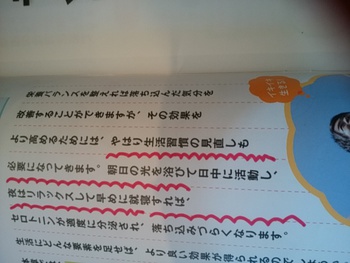 イキイキ
生きる
栄養バランスを整えれば落ち込んだ気分を
改善することができますが、その効果を
より高めるためには、やはり生活習慣の見直しも
必要になってきます。朝日の光を浴びて日中に活動し、
夜はリラックスして早めに就寝すれば、
セロトニンが適度に分泌され、落ち込みづらくなります。
生活にどんな要素を足せば、より良い効果が得られるので